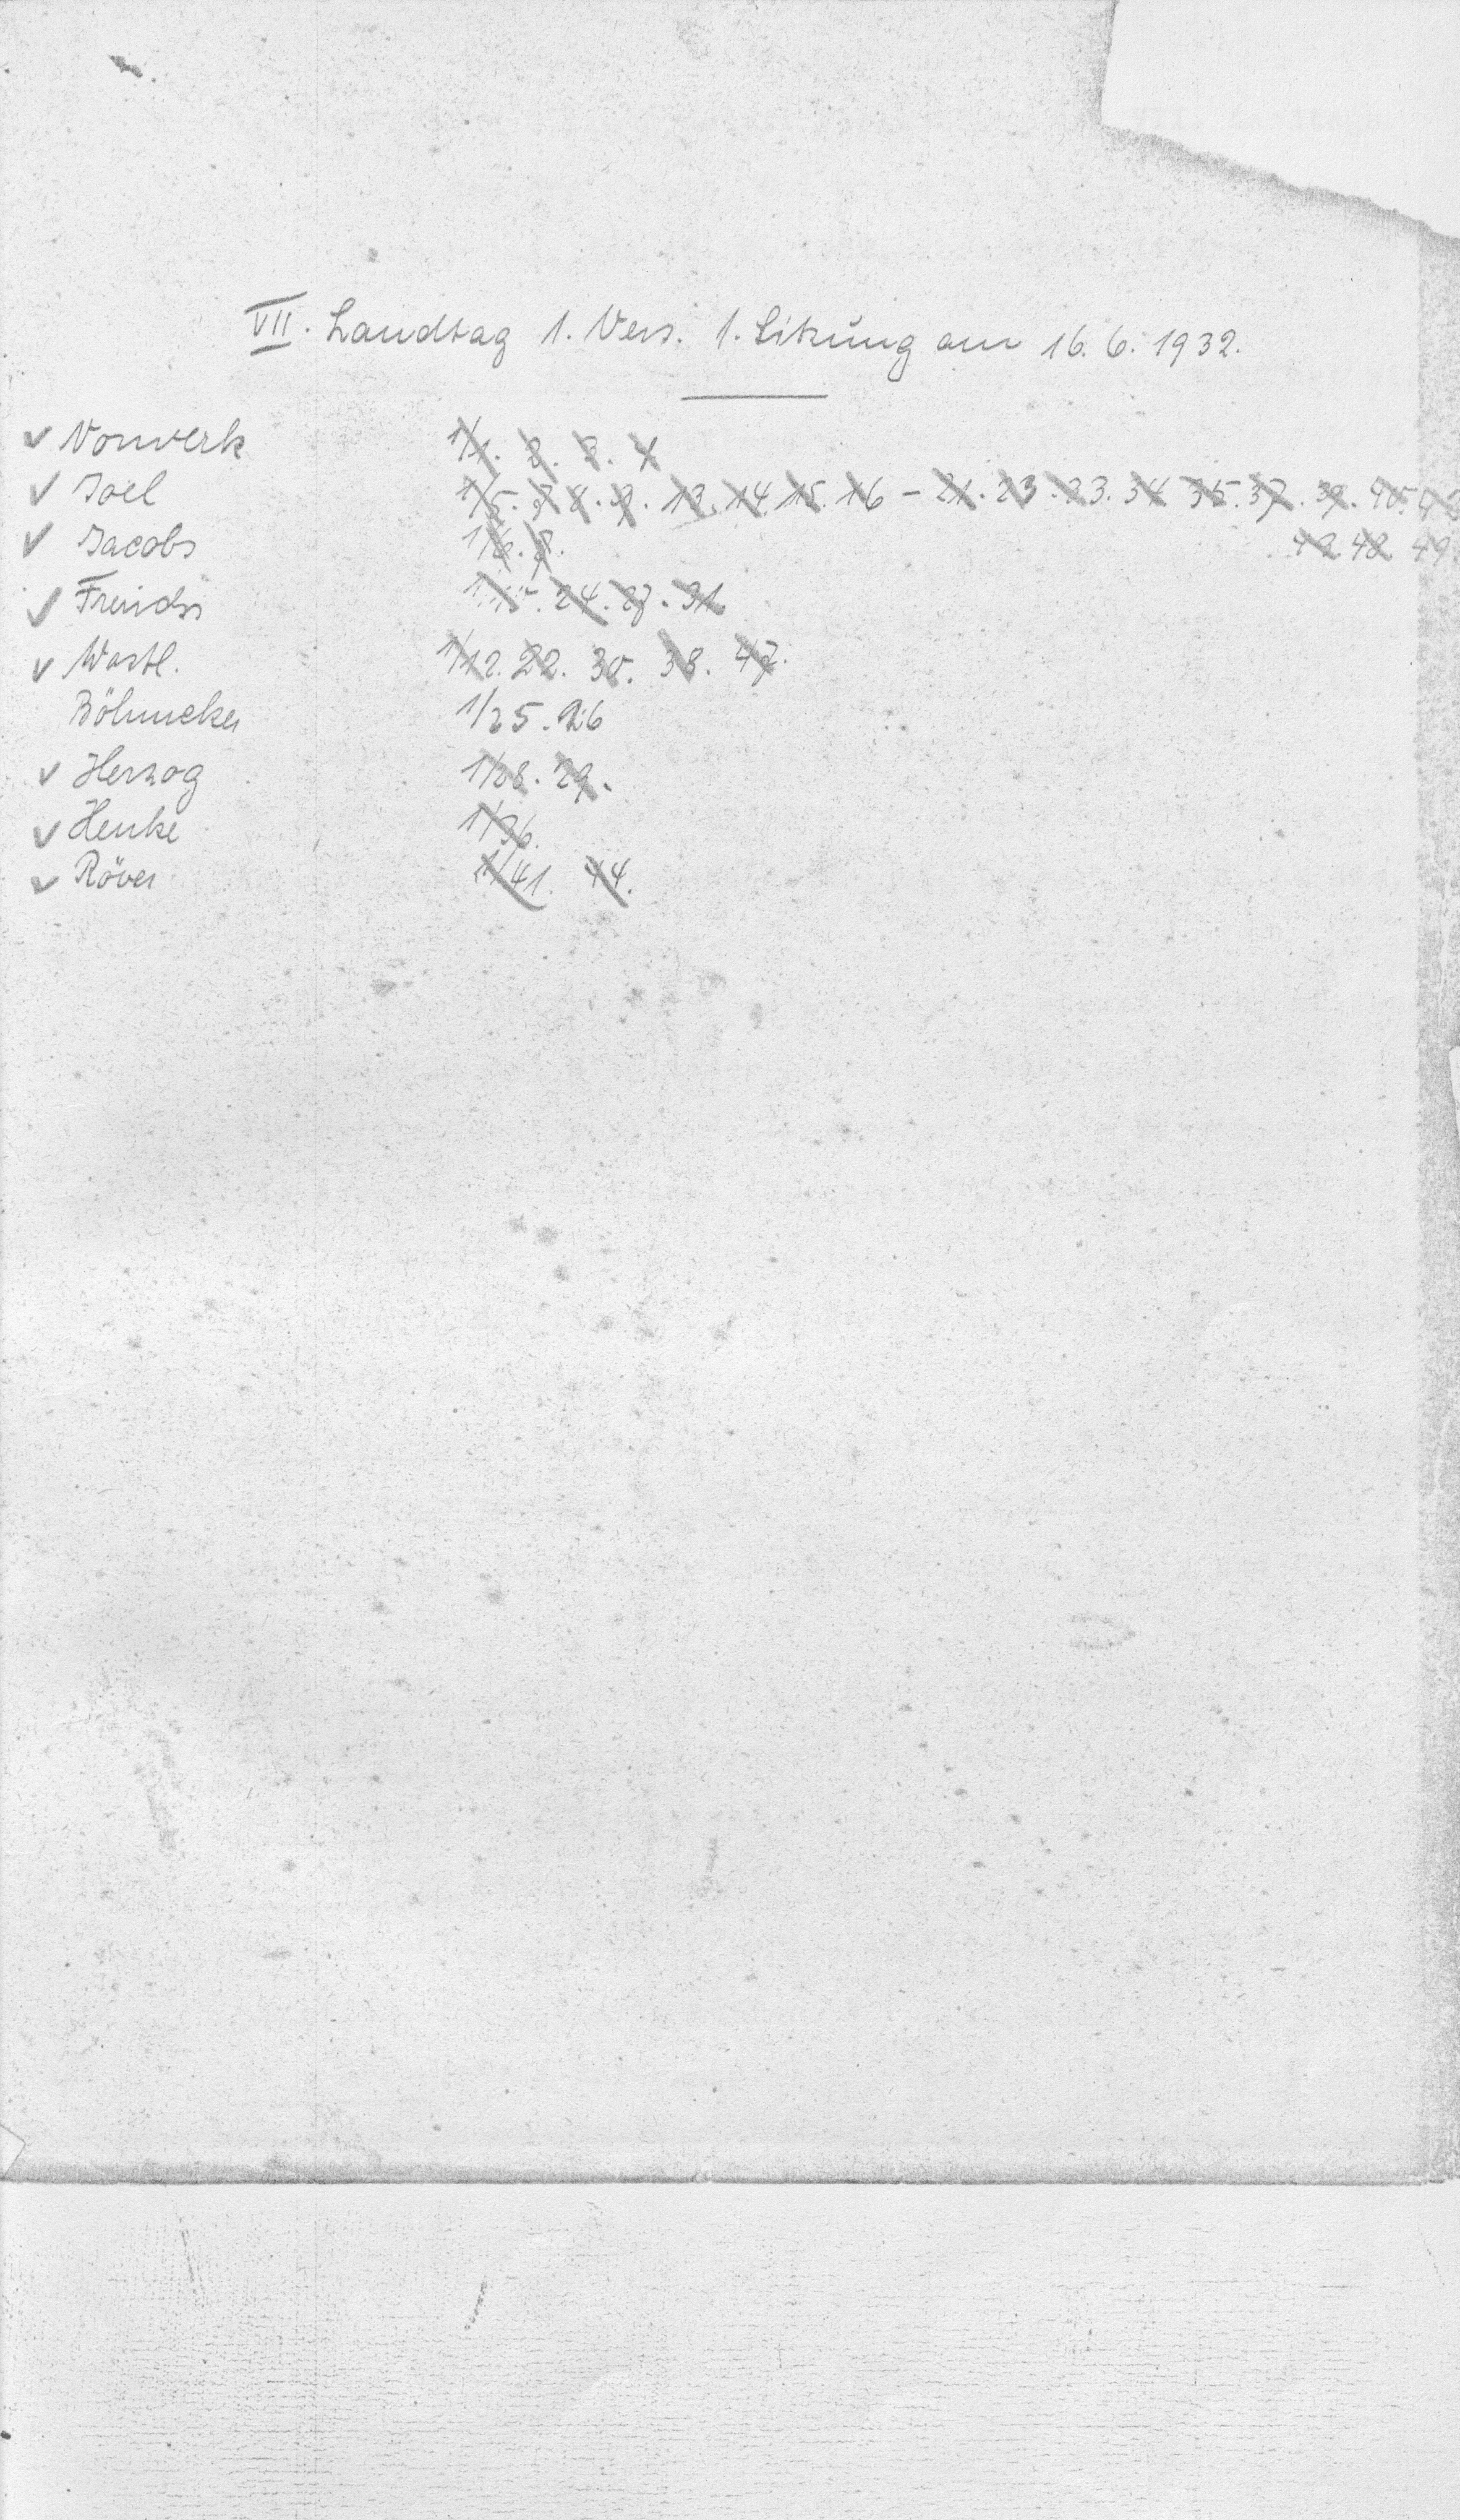 VII. Landtag 1. Vers. 1. Sitzung am 16.6.1932.
Vorwerk 1/1. 2. 3. 4
Joel 1/5. 7 8. 9. 13. 14 15. 16 - 21. 23. 33. 34 35. 37. 39. 40.
Jacobs 1/6. 8. 42 48 49.
Frerichs 24. 27. 31
Wartl. 1/12. 22. 30. 38. 47.
Böhmcker 1/25. 26
Herzog 1/28. 29.
Henke 1/36.
Röver 1/41. 44.